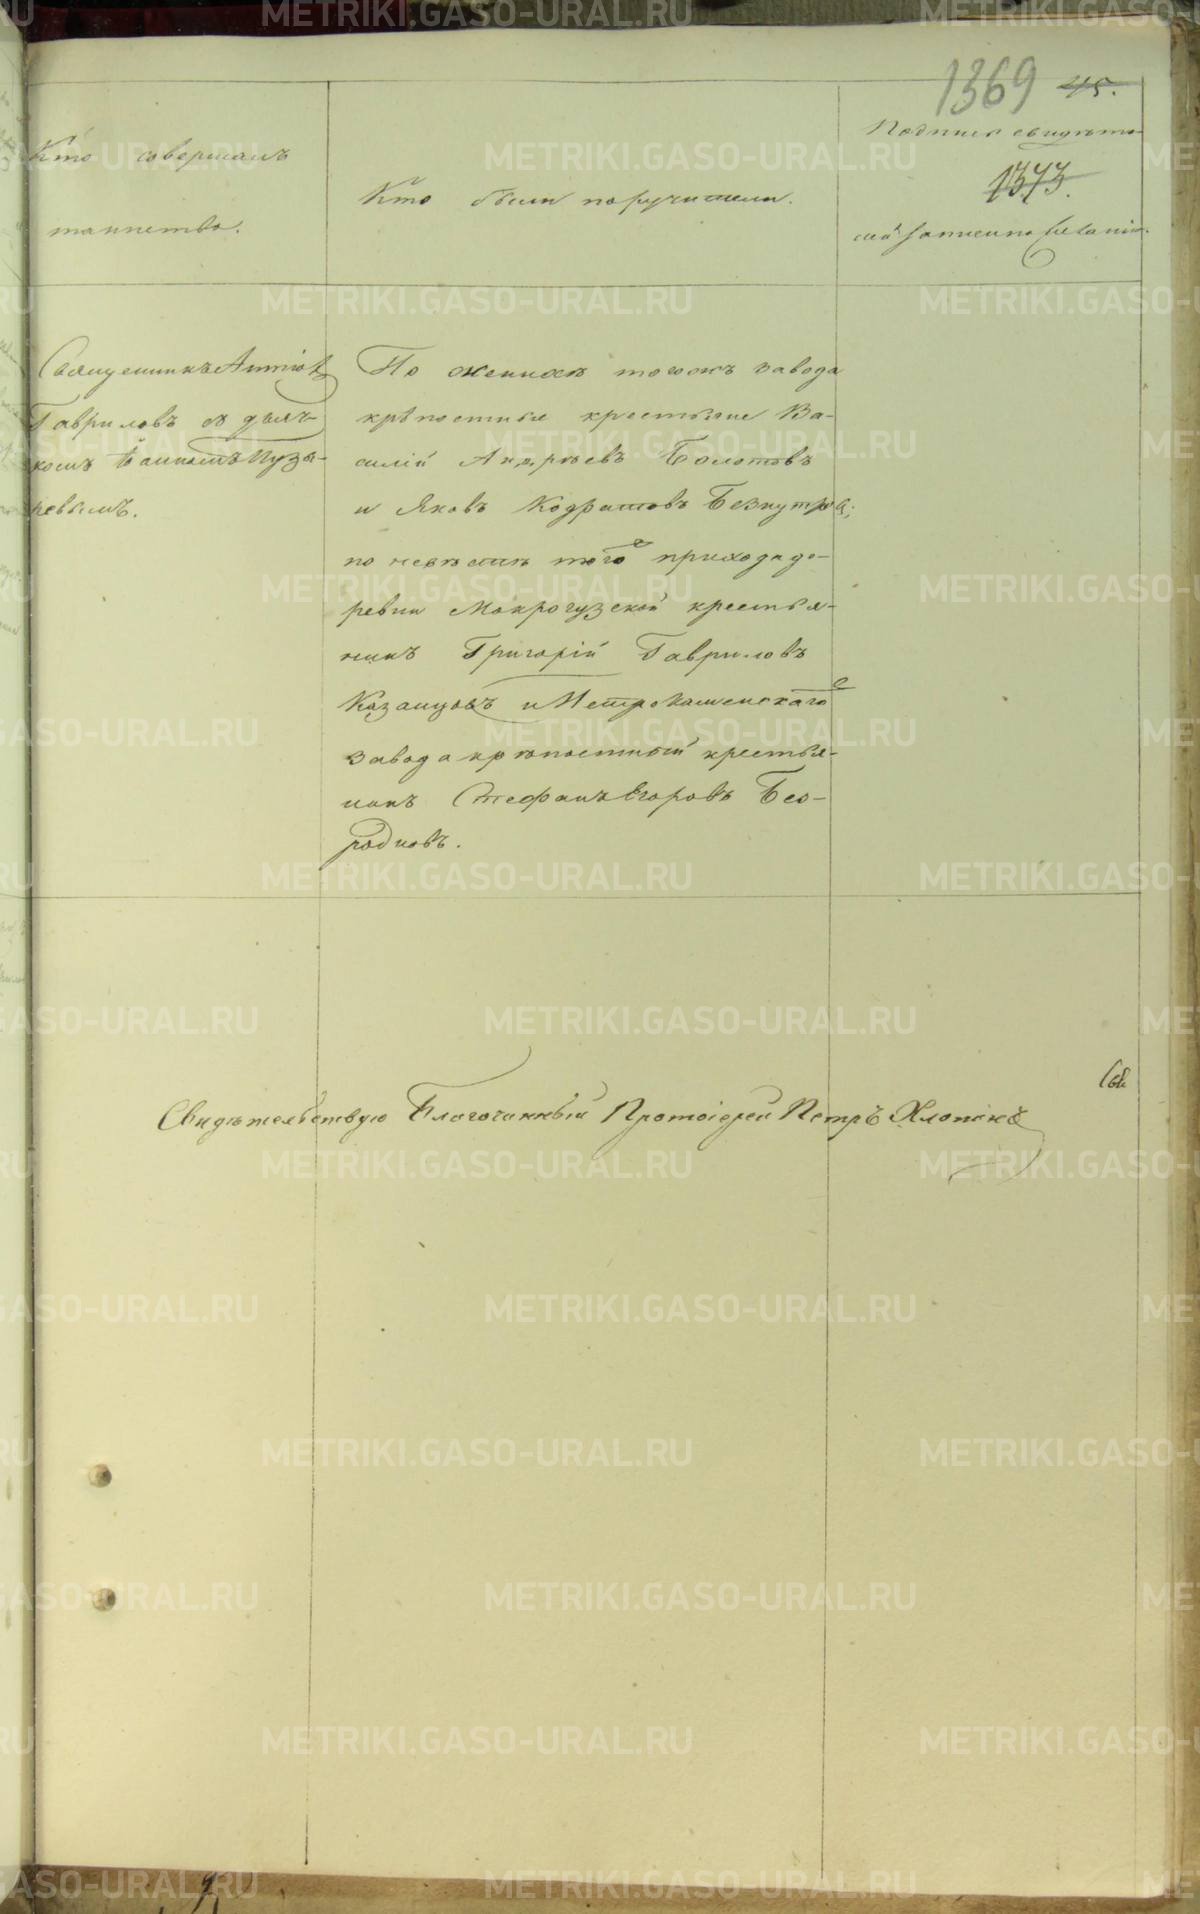 1369 45.
Кто совершалъ
таинство.
Кто были поручители.
Подпись свидѣте-
1373.
лей записи по желанію.
Священникъ
Гавриловъ съ дьяч-
комъ Пузы-
ревымъ.
По женихѣ тогожъ завода
крѣпостные крестьяне Ва-
силій Андреевъ Болотовъ
и Яковъ Кодратовъ
по невѣстѣ того прихода де-
ревни Мокроузской крестья-
нинъ Григорій Гавриловъ
Казанцовъ и Петрокаменскаго
завода крѣпостный крестья-
нинъ Стефанъ Егоровъ Без-
родновъ.
Свидѣтельствую Благочинный Протоіерей Петръ Хлопинъ
METRIKI.GASO-URAL.RU